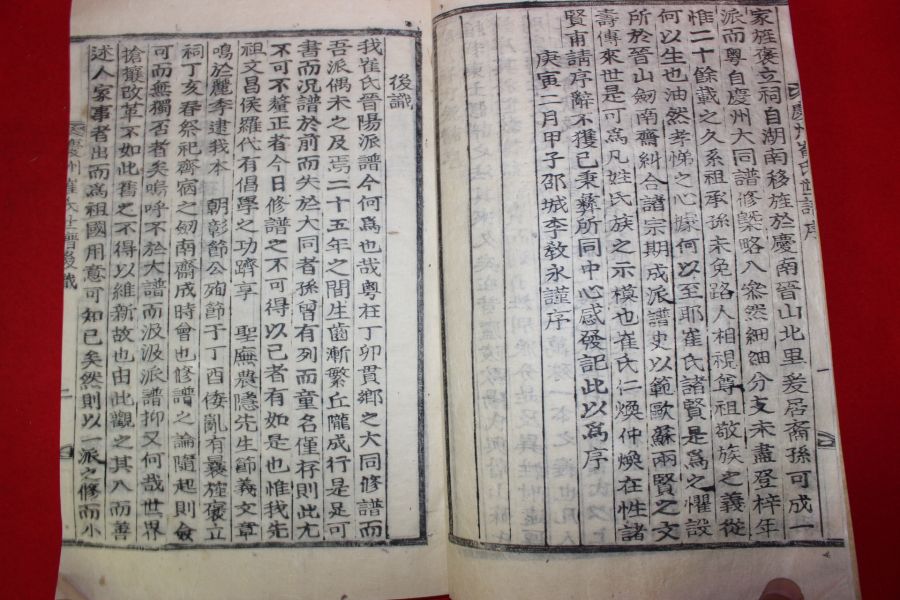 家旌褒立祠自湖南移旌於慶南晉山北里爰居裔孫可成一
派而粤自慶州大同譜修槩略入叅然細細分支未盡登梓年
惟二十餘載之久系祖承孫未免路人相視尊祖敬族之義從
何以生也油然孝悌之心據何以至耶崔氏諸賢是爲之懼設
所於晉山劒南齋糾合諸宗期成派譜史以範歐蘇兩賢之文
壽傳來世是可爲凡姓氏族之示模也崔氏仁煥仲煥在性諸
賢甫請序辭不獲已秉彝所同中心感發記此以爲序
庚寅二月甲子邵城李敎永謹序
慶州崔氏世譜序
一
後識
我崔氏晉陽派譜今何爲也哉粤在丁卯貫鄕之大同修譜而
吾派偶未之及焉二十五年之間生齒漸繁丘隴成行是是可
書而况譜於前而失於大同者孫曾有列而童名僅存則此尤
不可不釐正者今日修譜之不可得以已者有如是也惟我先
祖文昌侯羅代有倡學之功躋享 聖廡農隱先生節義文章
鳴於麗季逮我本 朝彰節公殉節于丁酉倭亂有曩旌褒立
祠丁亥春祭祀齊宿之劒南齋成時會也修譜之論隨起則僉
可而無獨否者矣嗚呼不於大譜而汲汲派譜抑又何哉世界
搶攘改革不如此舊之不得以維新故也由此觀之其入而善
述人家事者出而爲祖國用意可知已矣然則以一派之修而小
慶州崔氏世譜後識